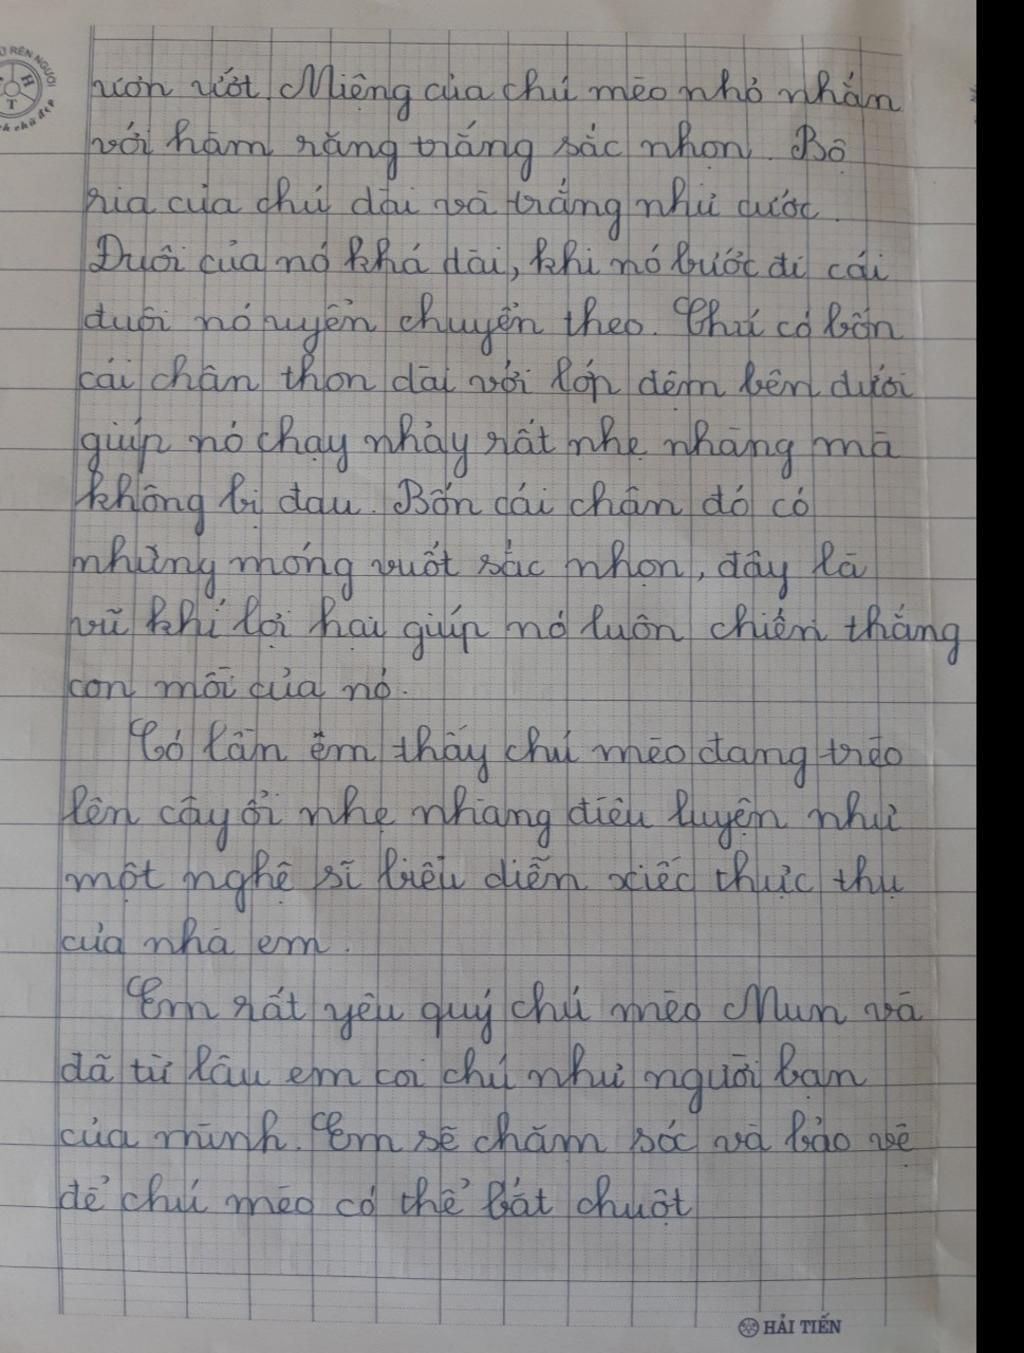 ươn ướt. Miệng của chú mèo nhỏ nhắn
với hàm răng trắng sắc nhọn. Bộ
ria của chú dài và trắng như cước.
Đuôi của nó khá dài, khi nó bước đi cái
đuôi nó uyển chuyển theo. Chú có bốn
cái chân thon dài với lớp đệm bên dưới
giúp nó chạy nhảy rất nhẹ nhàng mà
không bị đau. Bốn cái chân đó có
những móng vuốt sắc nhọn, đây là
vũ khí lợi hại giúp nó luôn chiến thắng
con mồi của nó.
Có lần em thấy chú mèo đang trèo
lên cây ổi nhẹ nhàng điêu luyện như
một nghệ sĩ biểu diễn xiếc thực thụ
của nhà em.
Em rất yêu quý chú mèo Mun và
đã từ lâu em coi chú như người bạn
của mình. Em sẽ chăm sóc và bảo vệ
để chú mèo có thể bắt chuột
HẢI TIẾN
RÈN NGƯỜI
H
T
chữ đẹp